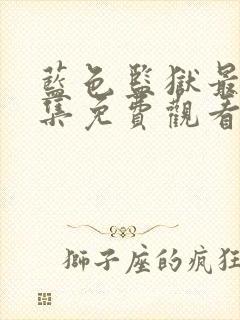 藍色監獄最
集免費觀看
獅子座的瘋狂